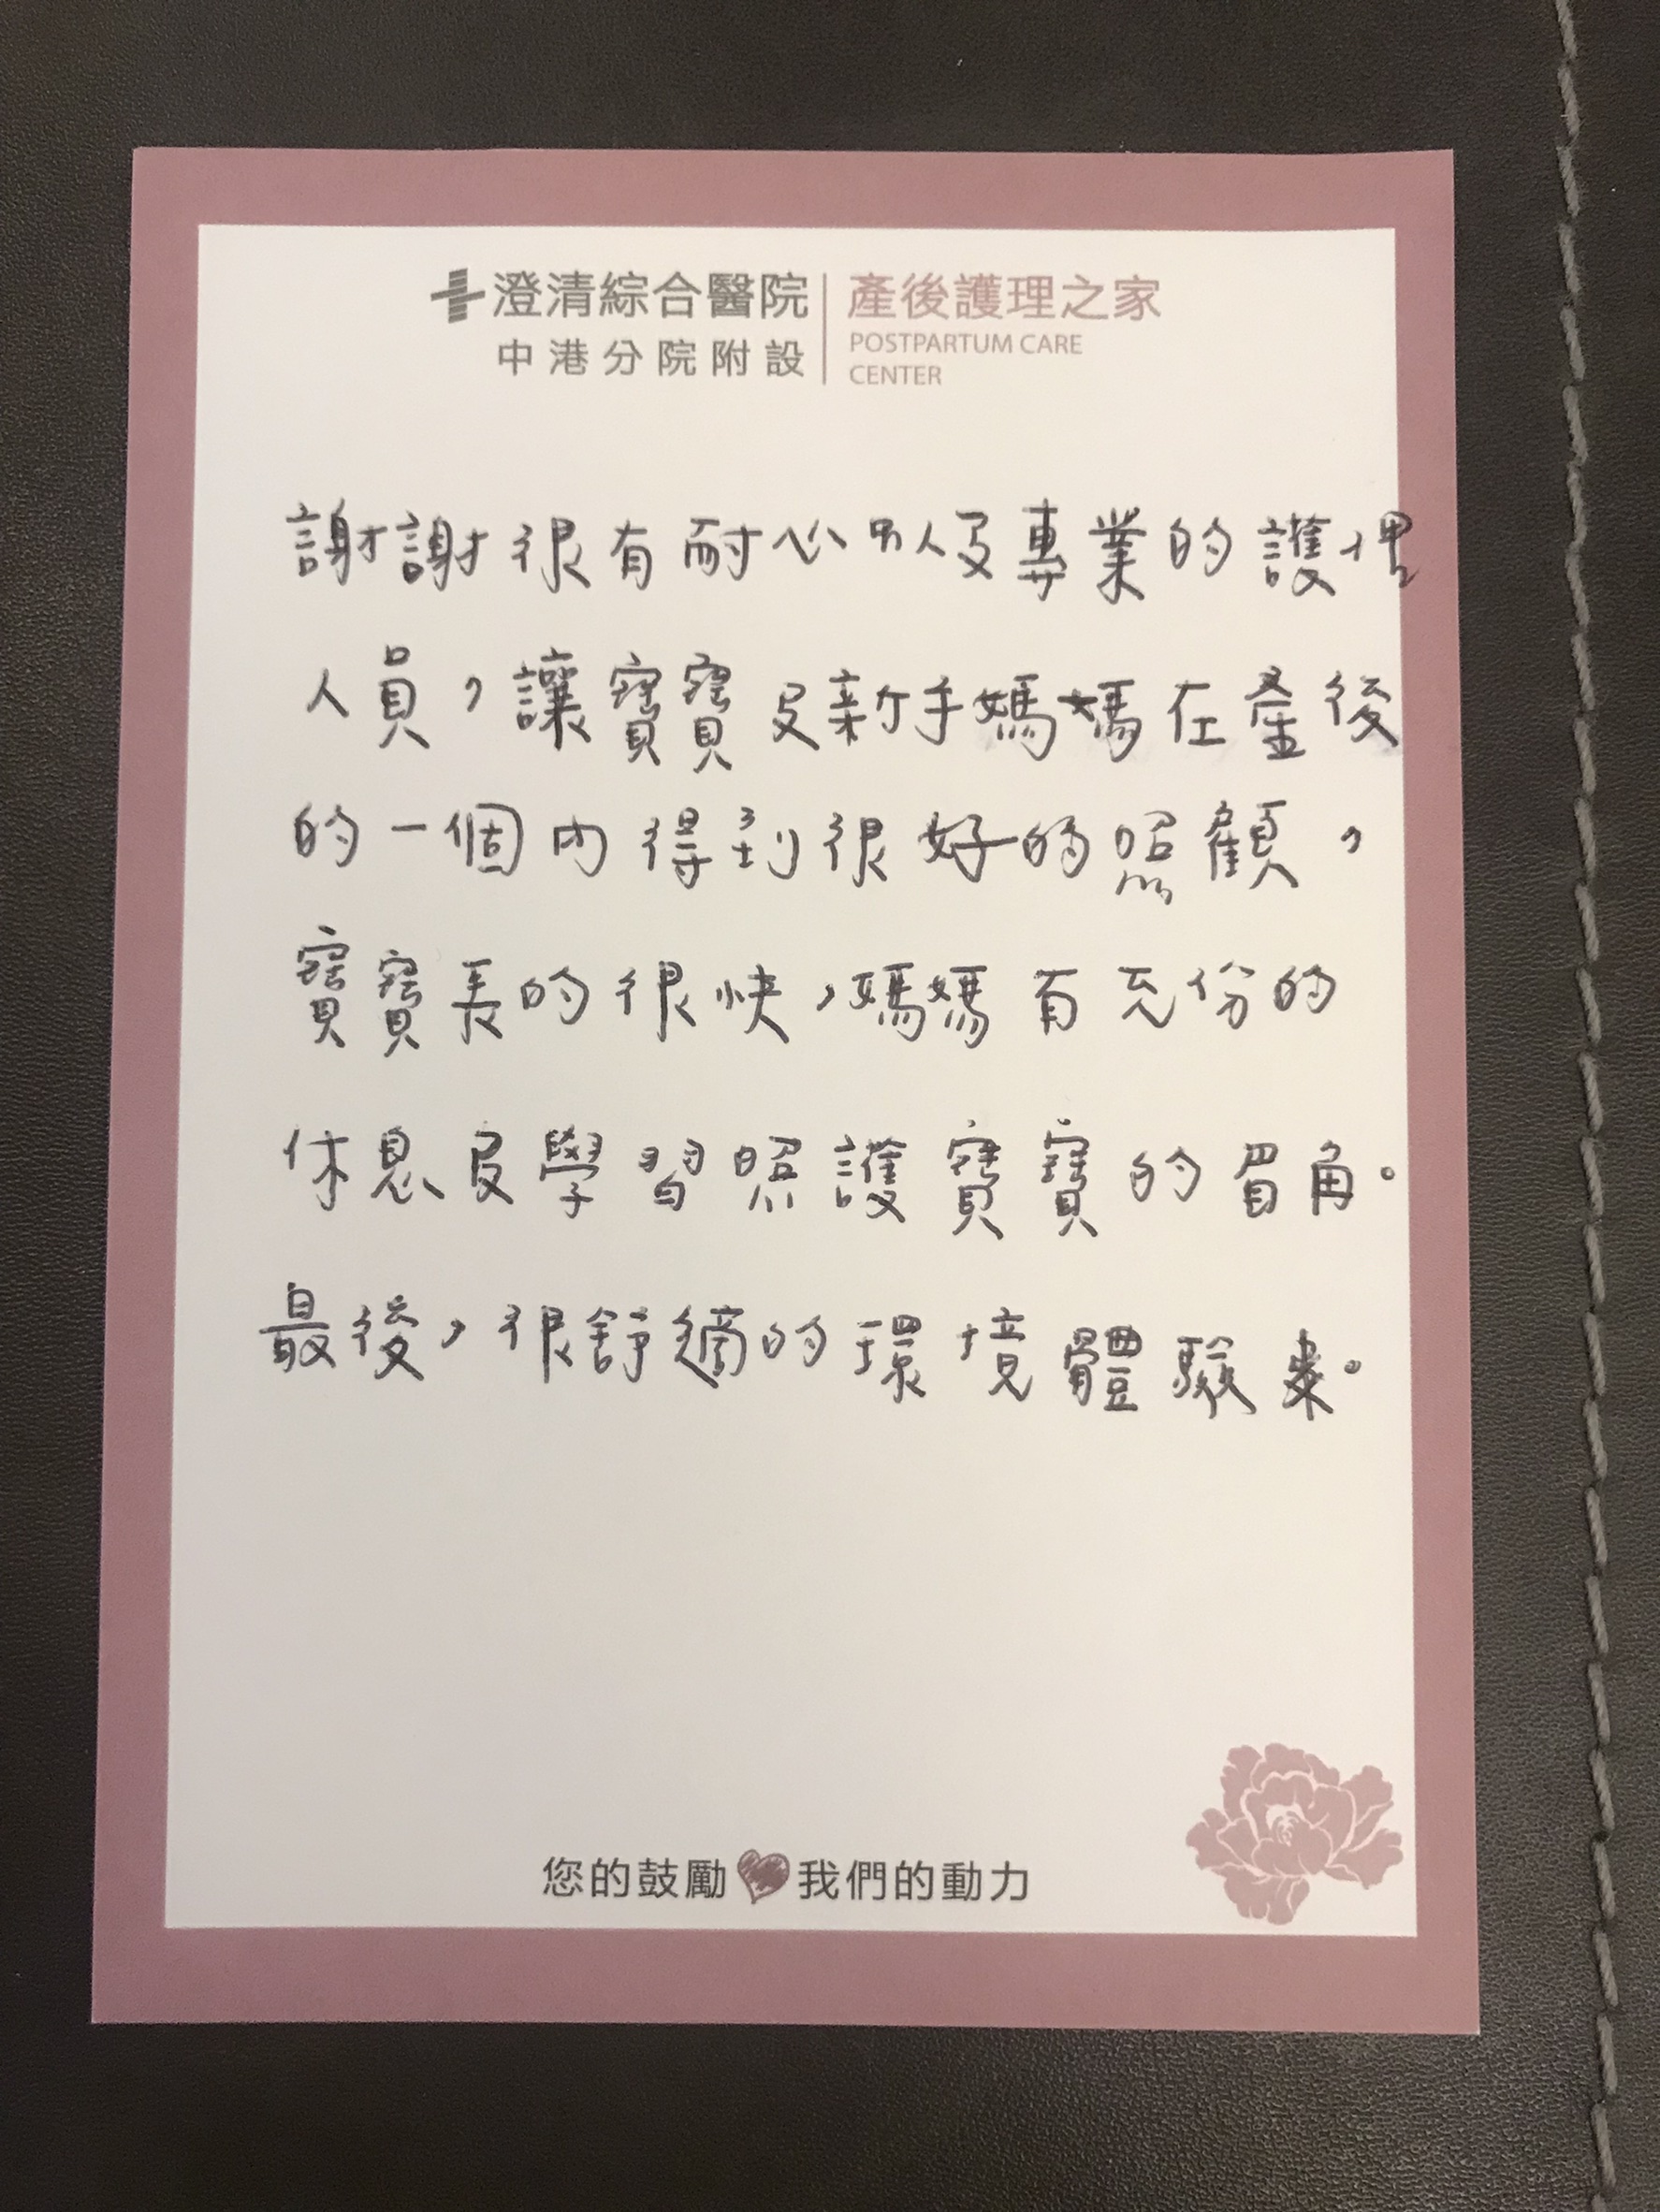 澄清綜合醫院 產後護理之家
中港分院附設 POSTPARTUM CARE
CENTER
謝謝很有耐心以及專業的護理
人員，讓寶寶及新手媽媽在產後
的一個內得到很好的照顧，
寶寶長的很快，媽媽有充份的
休息及學習照護寶寶的眉角。
最後，很舒適的環境體驗
您的鼓勵 我們的動力